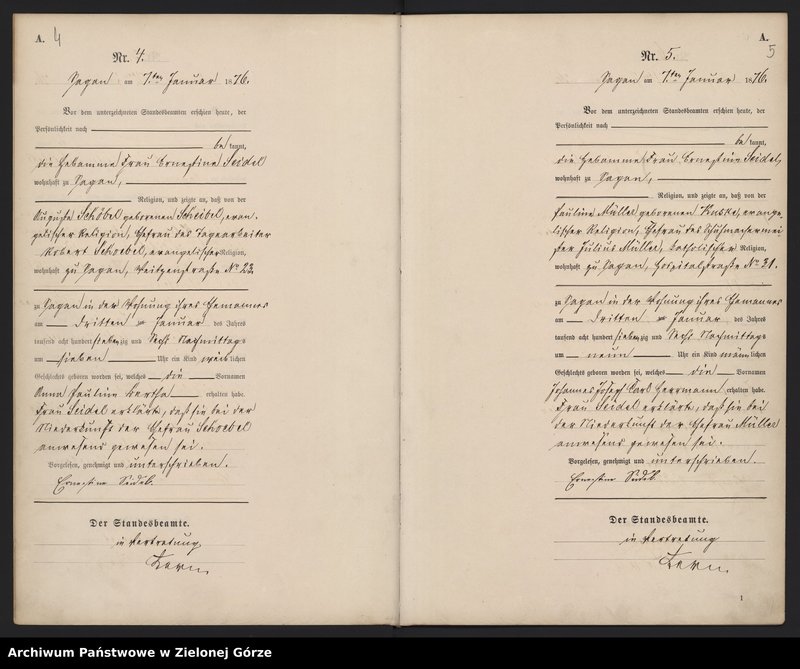 A. 4
Nr. 4.
Sagan am 7ten Januar 1876.
Vor dem unterzeichneten Standesbeamten erschien heute, der
Persönlichkeit nach
bekannt,
die Hebamme Frau Ernestine Seidel
wohnhaft zu Sagan,
Religion, und zeigte an, daß von der
Auguste Schöbel geborenen Scheibel, evan-
gelischer Religion, Ehefrau des Tagearbeiter
Robert Schoebel, evangelischer Religion,
wohnhaft zu Sagan, straße No 22
zu Sagan in der Wohnung ihres Ehemannes
am dritten Januar des Jahres
tausend acht hundert siebenzig und Sechs Nachmittags
um sieben Uhr ein Kind weiblichen
Geschlechts geboren worden sei, welches die Vornamen
Anna Pauline Bertha erhalten habe.
Frau Seidel erklärte, daß sie bei der
Niederkunft der Ehefrau Schoebel
anwesend gewesen sei.
Vorgelesen, genehmigt und unterschrieben.
Ernestine Seidel.
Der Standesbeamte.
in Vertretung
Kern
A. 5
Nr. 5.
Sagan am 7ten Januar 1876.
Vor dem unterzeichneten Standesbeamten erschien heute, der
Persönlichkeit nach
bekannt,
die Hebamme Frau Ernestine Seidel,
wohnhaft zu Sagan,
Religion, und zeigte an, daß von der
Pauline Müller geborenen evange-
lischer Religion, Ehefrau des Schuhmachermei
ster Julius Müller, katholischer Religion,
wohnhaft zu Sagan, Hospitalstraße No 31.
zu Sagan in der Wohnung ihres Ehemannes
am dritten Januar des Jahres
tausend acht hundert siebenzig und Sechs Nachmittags
um neun Uhr ein Kind männlichen
Geschlechts geboren worden sei, welches die Vornamen
Johannes Josef Carl Herrmann erhalten habe.
Frau Seidel erklärte, daß sie bei
der Niederkunft der Ehefrau Müller
anwesend gewesen sei.
Vorgelesen, genehmigt und unterschrieben.
Ernestine Seidel.
Der Standesbeamte.
in Vertretung
Kern
1
Archiwum Państwowe w Zielonej Górze